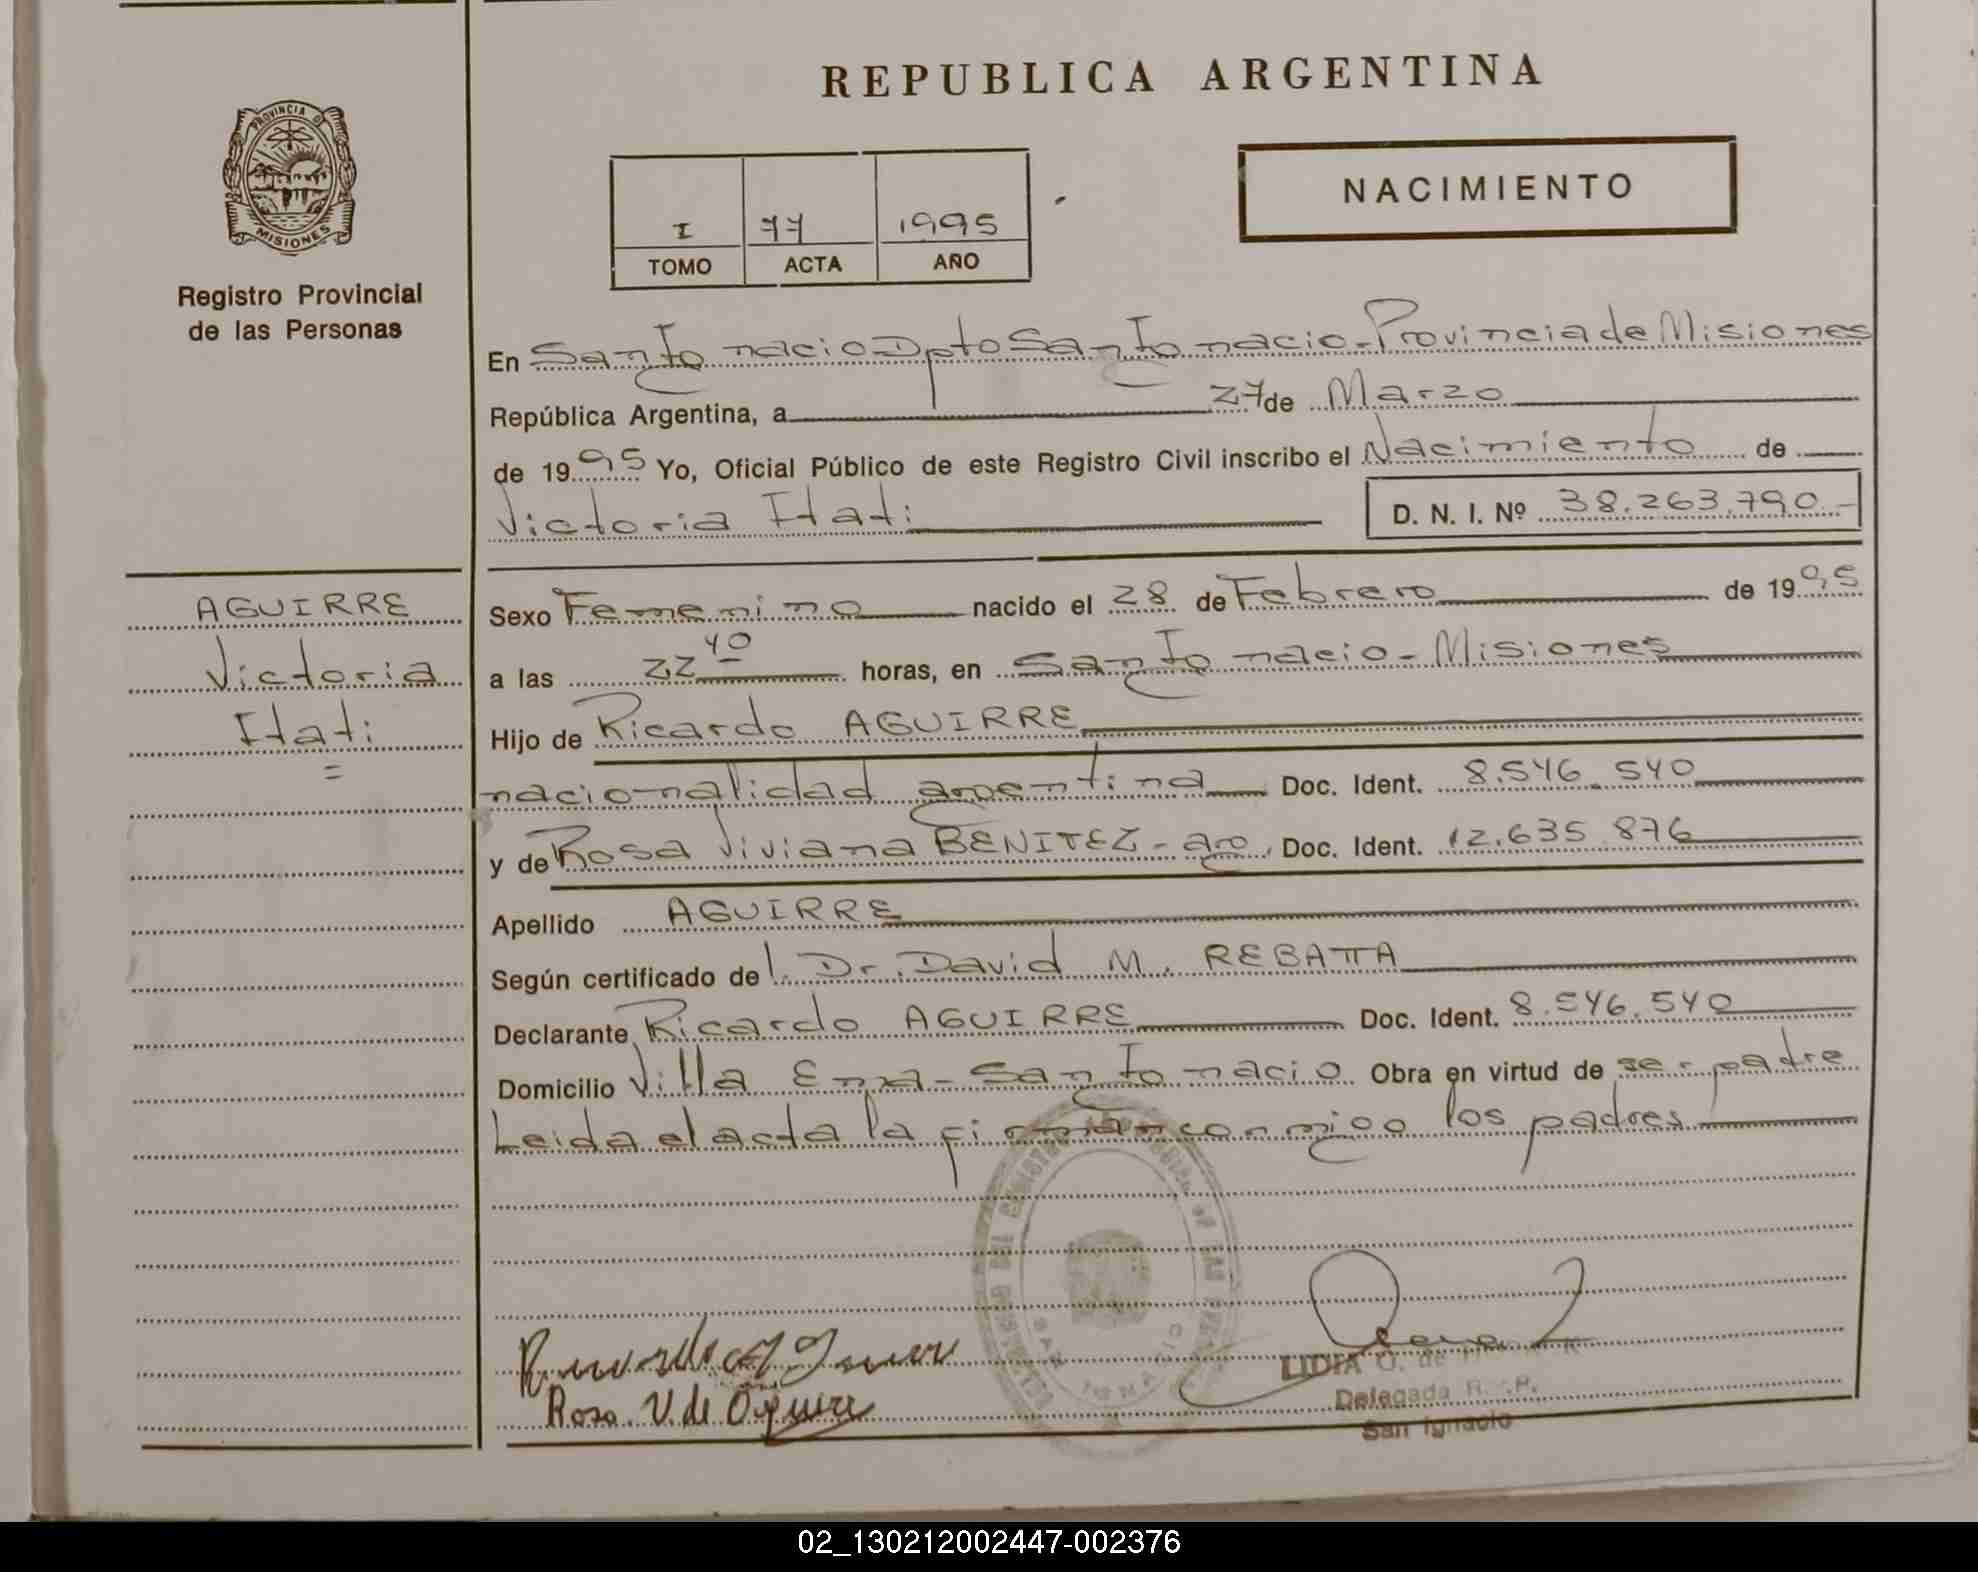 REPUBLICA ARGENTINA
PROVINCIA D
MISIONES
Registro Provincial
de las Personas
I 77 1995
TOMO ACTA AÑO
NACIMIENTO
En San Ignacio Dpto San Ignacio - Provincia de Misiones
República Argentina, a 27 de Marzo
de 1995 Yo, Oficial Público de este Registro Civil inscribo el Nacimiento de
Victoria Itati D. N. I. Nº 38.263.790.-
AGUIRRE
Victoria
Itati
=
Sexo Femenino nacido el 28 de Febrero de 1995
a las 22 40 horas, en San Ignacio - Misiones
Hijo de Ricardo AGUIRRE
nacionalidad argentina Doc. Ident. 8.546.540
y de Rosa Viviana BENITEZ - arg. Doc. Ident. 12.635.876
Apellido AGUIRRE
Según certificado del Dr. David M. REBATTA
Declarante Ricardo AGUIRRE Doc. Ident. 8.546.540
Domicilio Villa Ema - San Ignacio Obra en virtud de ser padre
Leida el acta la firman conmigo los padres
Rosa V. de
LIDIA O. de
Delegada
San Ignacio
02_130212002447-002376